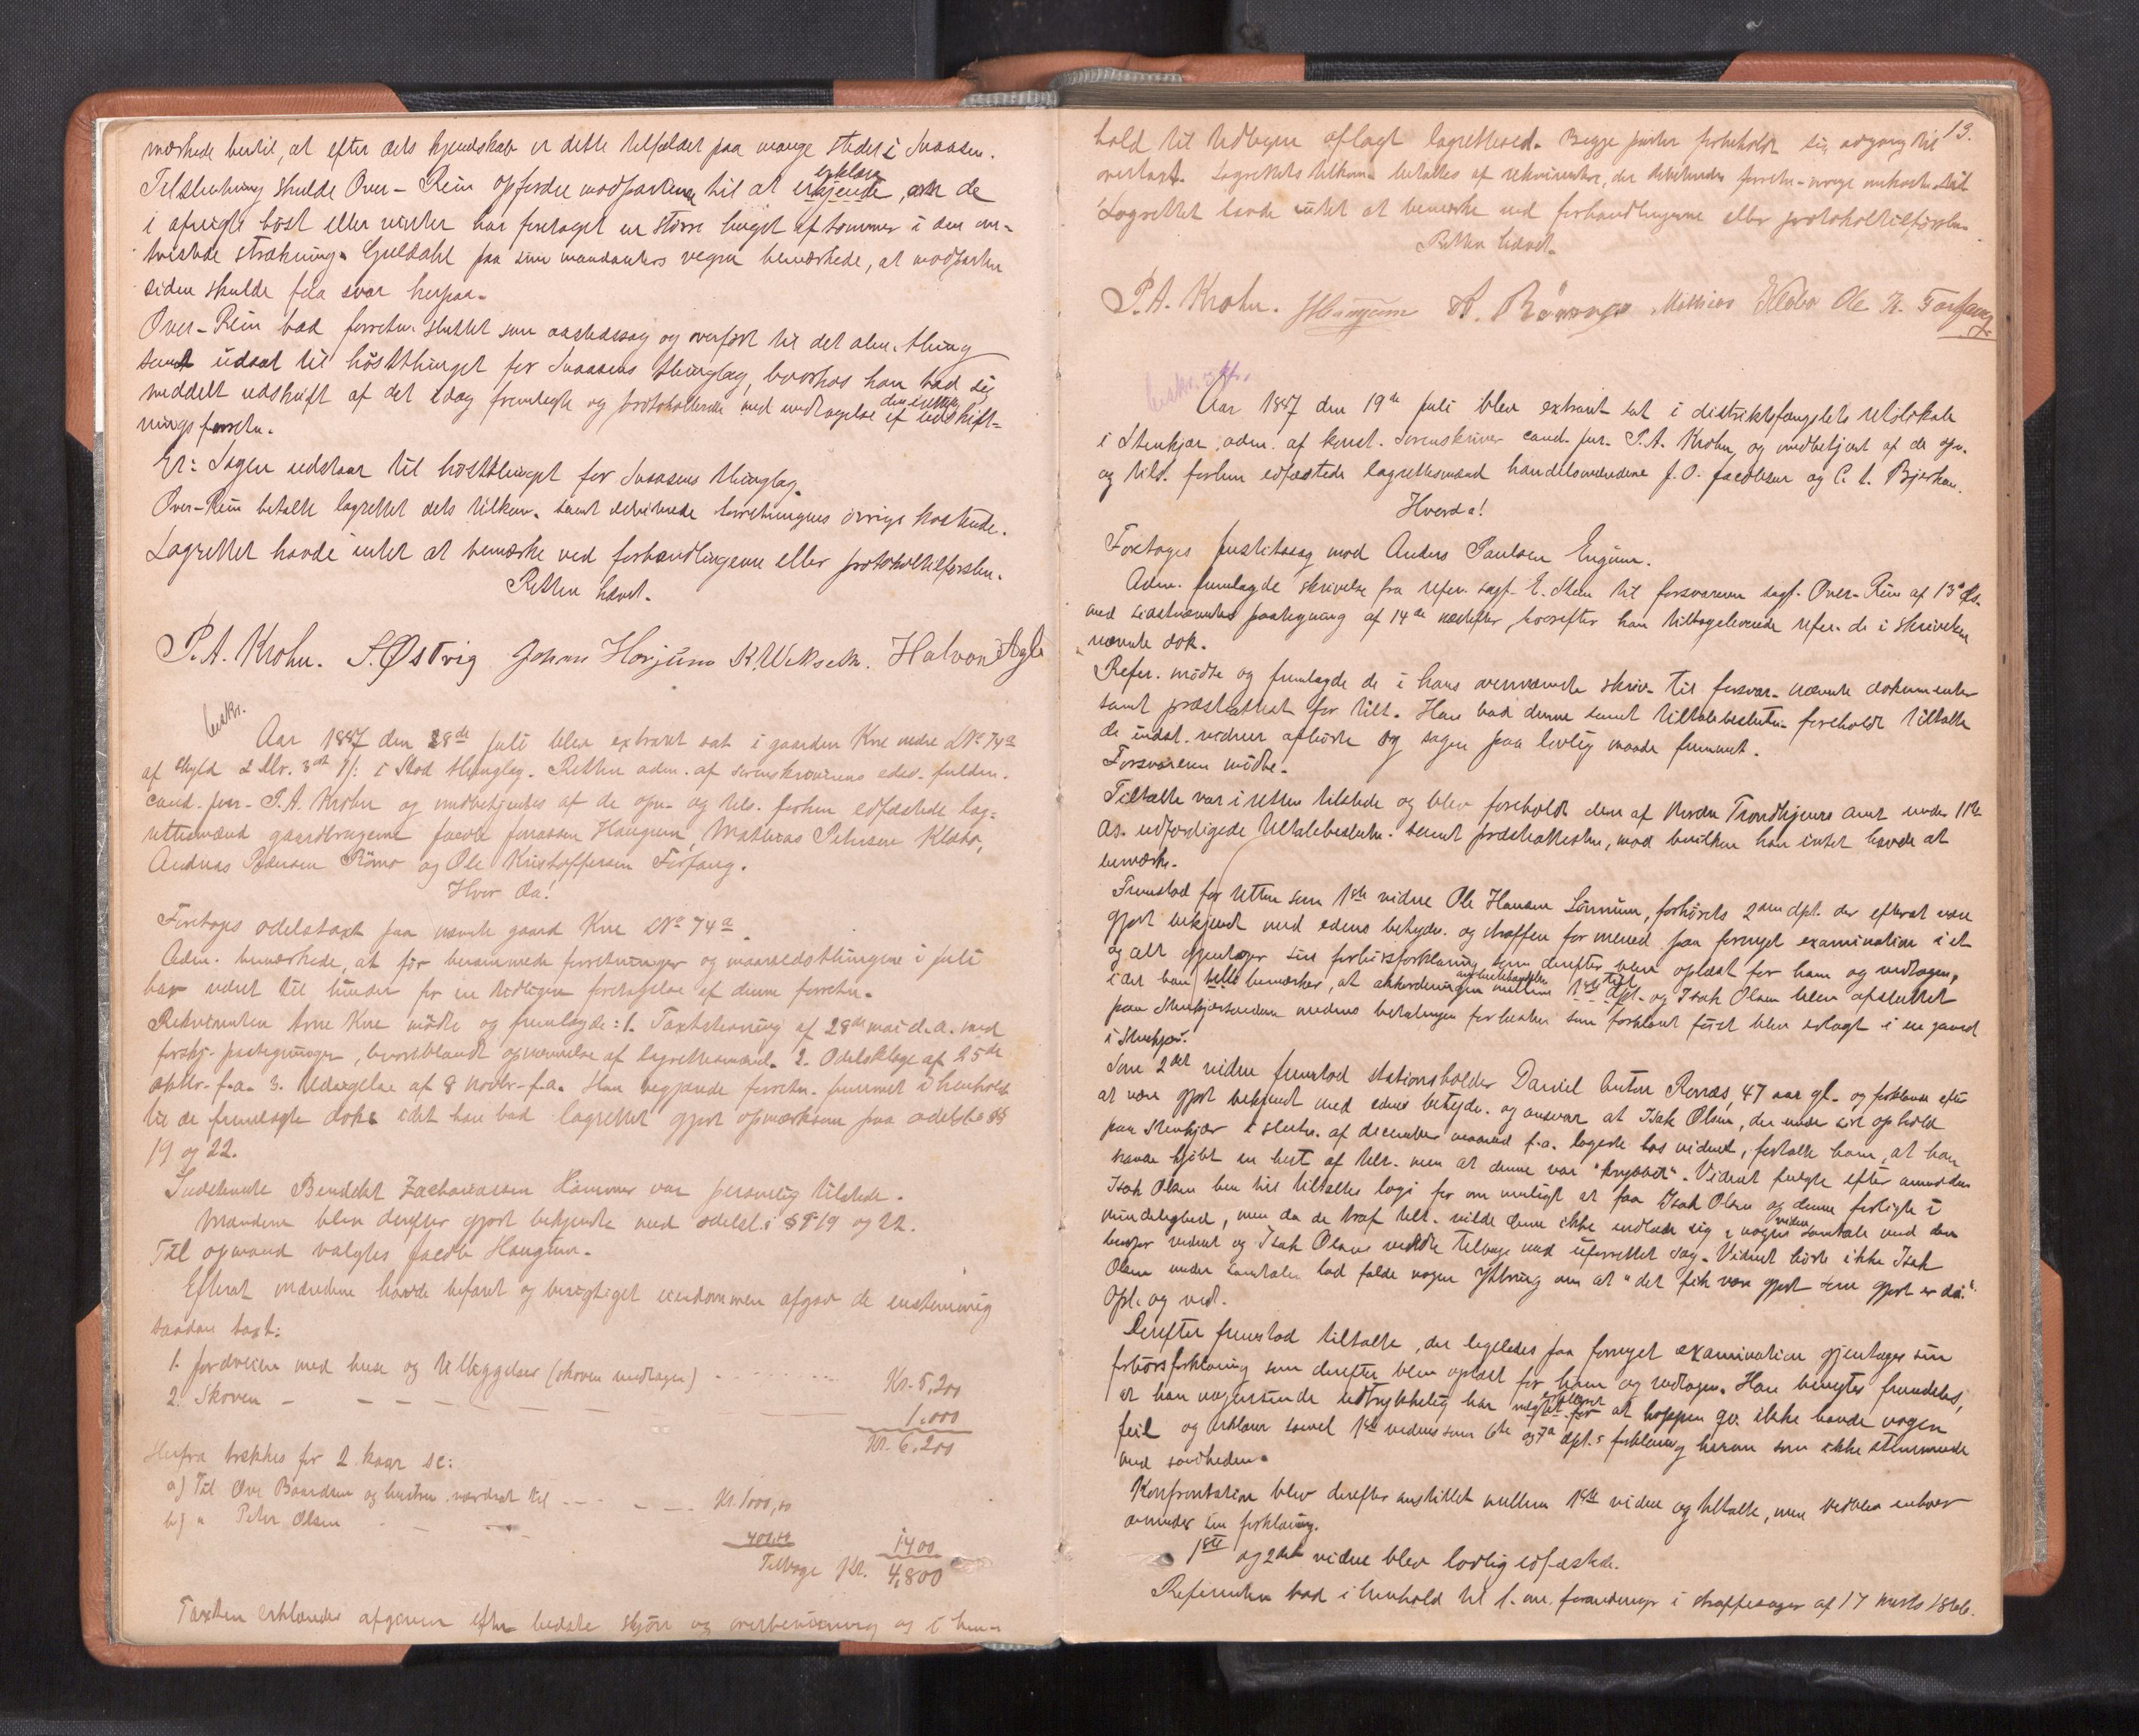 mærkede hertil, at efter dets kjendskab er dette tilfældet paa mange steder i Snaasen.
Tilslutning skulde Over-Rein opfordre modparterne til at erkjende, erklære om de
i afvigte høst eller vinter har foretaget en större hugst af tømmer i den om-
tvistede strækning. Guldahl paa sine mandanters vegne bemærkede, at modparten
siden skulde faa svar herpaa.
Over-Rein bad forretn. sluttet som aastedssag og overført til det alm. thing
samt udsat til høstthinget for Snaasens thinglag, hvorhos han bad sig
meddelt udskrift af det idag fremlagte og protokollerede med undtagelse af udskift-
ningsforretn.
Er: Sagen udstaar til høstthinget for Snaasens thinglag.
Over-Rein betalte lagrettet dets tilkom. samt forretningens övrige kostende.
Lagrettet havde intet at bemærke ved forhandlingerne eller protokoltilförslen.
Retten hævet.
P. A. Krohn. S. Østvig Johan Horjum K. Weksem. Halvor Agle
beskr.
Aar 1887 den 18de juli blev extraret sat i gaarden Kne nedre LNo 74a
af skyld 2 dlr. 3 ort i Stod thinglag. Retten adm. af sorenskriverens edsv. fuldm.
cand. jur. P. A. Krohn og medbetjentes af de opn. og tils. forhen edfæstede lag-
rettesmænd gaardbrugerne Jacob Jonassen Haugum, Mathias Petersen Kleba,
Andreas Römo og Ole Kristoffersen Forfang.
Hvor da!
Foretoges odelstaxt paa nævnte gaard Kne LNo 74a.
Adm. bemærkede, at för berammede forretninger og maanedsthingene i juli
har været til hinder for en tidligere foretagelse af denne forretn.
Rekvirenten Arne Kne mödte og fremlagde: 1. Taxtstævning af 28de mai d.a. med
forskj. paategninger, hvoriblandt opnævnelse af lagrettesmænd. 2. Odelsklage af 25de
oktbr. f.a. 3. Udsigelse af 8 novbr. f.a. Han begjærede forretn. fremmet i henhold
til de fremlagte dok. idet han bad lagrettet gjort opmærksom paa odelsl. §§
19 og 22.
Indstevnte Bendikt Zachariassen Hammer var personlig tilstede.
Mændene blev derefter gjort bekjendte med odelsl.s §§ 19 og 22.
Til opmand valgtes Jacob Haugum.
Efterat mændene havde befaret og besigtiget eiendommen afgav de enstemmig
saadan taxt:
1. Jordveien med huse og tilliggelser (skoven undtagen) . . . . . . . . Kr. 5,200
2. Skoven - - - - - - - 1.000
Kr. 6,200
Herfra trækkes for 2 kaar sc:
a) Til Ole Baardsen og hustru værdsat til - - - Kr. 1000,00
b) " Peter Olsen - - - 400.00 1400
Tilbage Kr. 4,800
Taxten erklæredes afgiven efter bedste skjön og overbevisning og i hen-
13.
hold til tidligere aflagt lagretteed. Begge parter forbeholdt sig adgang til
overtaxt. Lagrettets tilkom. betaltes af rekvirenten, der forretn. övrige omkostn.
Lagrettet havde intet at bemærke ved forhandlingerne eller protokoltilförslen.
Retten hævet.
P. A. Krohn. JHaugum A. Römo Mathias Klebo Ole K. Forfang.
beskr.
Aar 1887 den 19de juli blev extraret sat i distriktsfængslets retslokale
i Stenkjær adm. af konst. sorenskriver cand. jur. P. A. Krohn, og medbetjent af de opn.
og tils. forhen edfæstede lagrettesmænd handelsmændene J. O. Jacobsen og C. L. Bjerkan.
Hvorda!
Foretoges justitssag mod Anders Paulsen Engum.
Adm. fremlagde skrivelse fra refer. sagf. E. Stein til forsvareren sagf. Over-Rein af 13de ds.
med sidstnævntes paategning af 14de næstefter, hvorefter han tilbageleverede refer. de i skrivelsen
nævnte dok.
Refer. mödte og fremlagde de i hans ovennævnte skriv. til forsvar. nævnte dokumenter
samt præsteattest for tilt. Han bad denne samt tiltalebeslutn. foreholdt tiltalte
de indst. vidner afhörte og sagen paa lovlig maade fremmet.
Forsvareren mödte.
Tiltalte var i retten tilstede og blev foreholdt den af Nordre Trondhjems amt under 11te
ds. udfærdigede tiltalebeslutn. samt præsteattesten, mod hvilken han intet havde at
bemærke.
Fremstod for retten som 1ste vidne Ole Hansen Lönnum, forhörets 2den dpt. der efterat være
gjort bekjendt med edens betydn. og straffen for mened paa fornyet examination i et
og alt gjentager sin forhörsforklaring som derefter blev oplæst for ham og vedtagen,
idet han bemærker, at akkorderingen mellem 1ste dpt. tilt. og Isak Olsen blev afsluttet
paa Stenkjærsandene medens betalingen for hesten som forklaret först blev erlagt i en gaard
i Stenkjær.
Som 2det vidne fremstod stationsholder Daniel Anton Rennæs, 47 aar gl. og forklarer efter
at være gjort bekjendt med edens betydn. og ansvar at Isak Olsen, der under sit ophold
paa Stenkjær i slutn. af december maaned f.a. logerte hos vidnet, fortalte ham, at han
havde kjöbt en hest af tilt. men at denne var "krybbet". Vidnet fulgte efter anmodn.
Isak Olsen hen til tiltaltes logi for om muligt at faa Isak Olsen og denne forligte i
mindelighed, men da de traf tilt. vilde denne ikke indlade sig i nogen videre samtale med dem
hvorfor vidnet og Isak Olsen vendte tilbage med uforrettet sag. Vidnet hörte ikke Isak
Olsen under samtalen lod falde nogen ytring om at "det fik være gjort som gjort er da."
Opl. og ved.
Derefter fremstod tiltalte, der ligeledes paa fornyet examination gjentager sin
forhörsforklaring som derefter blev oplæst for ham og vedtagen. Han benegter fremdeles,
at han nogensinde udtrykkelig har erklæret at hoppen qv. ikke havde nogen
feil og erklærer saavel 1ste vidnes som 6te og 7de dpt.s forklaring herom som ikke stemmende
med sandheden.
Konfrontation blev derefter anstillet mellem 1ste vidne og tiltalte, men vedblev enhver
avendes sin forklaring.
1ste og 2det vidne blev lovlig edfæstede.
Referenten bad i henhold til l. om forandringer i straffesager af 17 marts 1866.